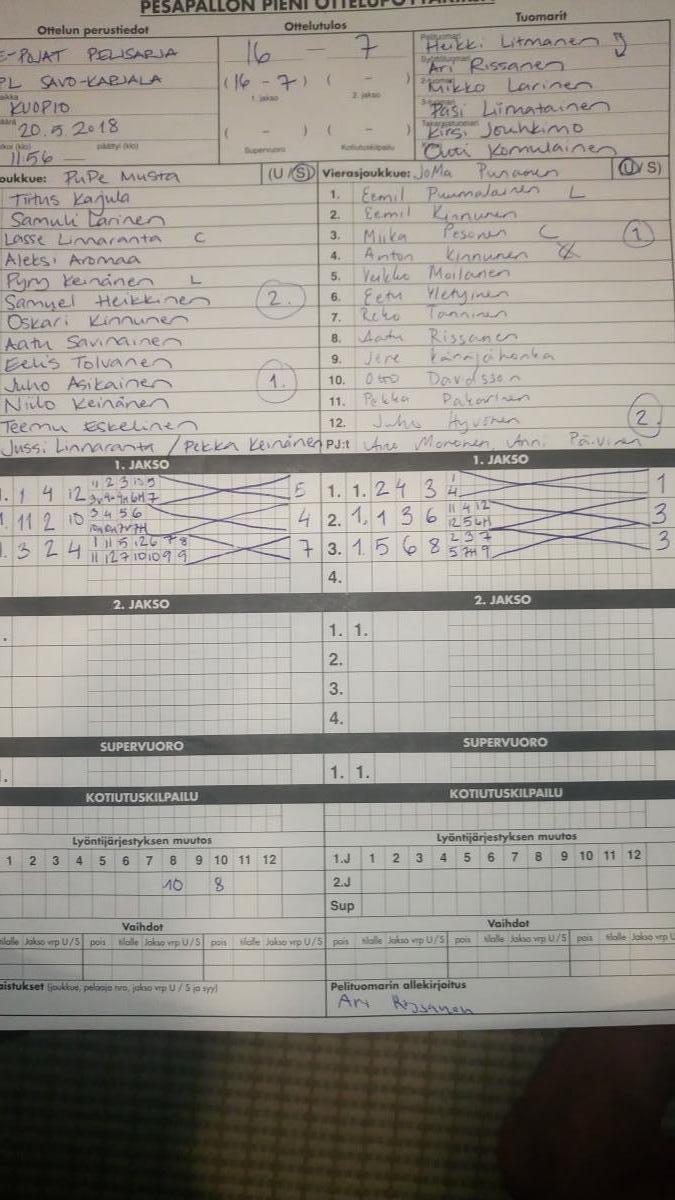 PESÄPALLON PIENI OTTELUPÖYTÄKIRJA
Ottelun perustiedot
E-POJAT PELISARJA
PL SAVO-KARJALA
KUOPIO
20.5.2018
päättyi (klo)
11:56
Ottelutulos
16 - 7
(16 - 7) ( - )
1. jakso 2. jakso
( - ) ( - )
Supervuoro Kotiutuskilpailu
Tuomarit
Heikki Litmanen
Ari Rissanen
Mikko Larinen
Pasi Liimatainen
Kirsi Jouhkimo
Outi Komulainen
joukkue: PuPe Musta (U / S)
Tiitus Karjula
Samuli Larinen
Lasse Linnaranta C
Aleksi Aromaa
Pyry Keinänen L
Samuel Heikkinen 2.
Oskari Kinnunen
Aatu Savinainen
Eelis Tolvanen
Juho Asikainen 1.
Niilo Keinänen
Teemu Eskelinen
Jussi Linnaranta / Pekka Keinänen
Vierasjoukkue: JoMa Punanen (U / S)
1. Eemil Puumalainen L
2. Eemil Kinnunen
3. Miika Pesonen C 1
4. Anton Kinnunen
5. Veikko Moilanen
6. Eetu Yletyinen
7. Reko Tanninen
8. Aatu Rissanen
9. Jere Käräjähonka
10. Otto Davidsson
11. Pekka Pakarinen
12. Juho Hyvönen 2.
PJ:t Anni Päivinen
1. JAKSO
1 4 12 5
1 11 2 10 3 4 5 6 4
1 3 2 4 7
1. JAKSO
1. 1. 2 4 3 1 4 1
2. 1. 1 3 6 11 4 12 3
3. 1 5 6 8 2 3 7 3
4.
2. JAKSO
2. JAKSO
1. 1.
2.
3.
4.
SUPERVUORO
SUPERVUORO
1. 1.
KOTIUTUSKILPAILU
KOTIUTUSKILPAILU
Lyöntijärjestyksen muutos
1 2 3 4 5 6 7 8 9 10 11 12
10 8
Lyöntijärjestyksen muutos
1.J 1 2 3 4 5 6 7 8 9 10 11 12
2.J
Sup
Vaihdot
tilalle Jakso vrp U / S pois tilalle Jakso vrp U / S pois tilalle Jakso vrp U / S
Vaihdot
pois tilalle Jakso vrp U / S pois tilalle Jakso vrp U / S pois tilalle Jakso vrp U
(joukkue, pelaaja nro, jakso vrp U / S ja syy)
Pelituomarin allekirjoitus
Ari Rissanen